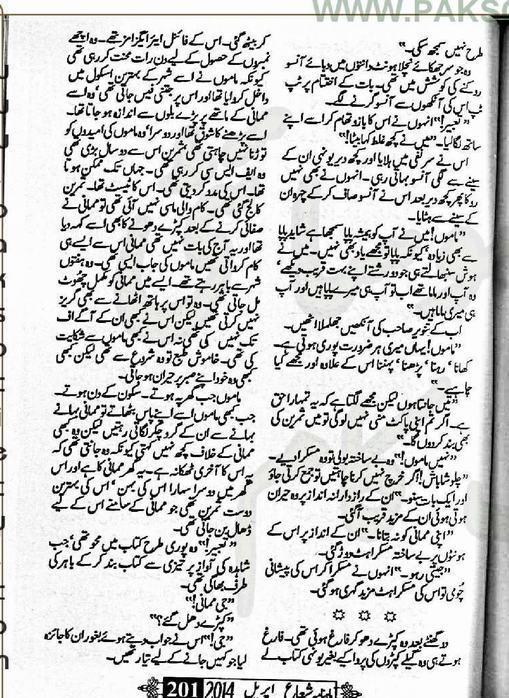 WWW.PAKSO
طرح نہیں سمجھ سکی۔“
وہ جو سر جھکائے نچلا ہونٹ دانتوں میں دبائے آنسو
روکنے کی کوشش میں تھی۔ بات کے اختتام پر ٹپ
ٹپ اس کی آنکھوں سے آنسو گرنے لگے۔
”تعبیر!“ انہوں نے اس کا بازو تھام کر اسے اپنے
ساتھ لگا لیا۔ ”میں نے کچھ غلط کہا بیٹا!“
اس نے سر نفی میں ہلایا اور کچھ دیر یونہی ان کے
سینے سے لگی آنسو بہاتی رہی۔ انہوں نے بھی نہیں
روکا پھر کچھ دیر بعد اس نے آنسو صاف کر کے چہرہ ان
کے سینے سے ہٹایا۔
”ماموں! میں نے آپ کو ہمیشہ پاپا سمجھا ہے شاید پاپا
سے بھی زیادہ، کیونکہ پاپا تو مجھے یاد بھی نہیں۔ میں نے
ہوش سنبھالتے ہی جو دو رشتے اپنے بہت قریب دیکھے،
وہ آپ اور ماما تھے اب تو آپ ہی میرے پاپا ہیں اور آپ
ہی میری ماما ہیں۔“
اب کے تنویر صاحب کی آنکھیں جھلملا اٹھیں۔
”ماموں! یہاں میری ہر ضرورت پوری ہوتی ہے۔
کھانا، رہنا، پڑھنا، پہننا اس کے علاوہ اور مجھے کیا
چاہیے۔“
”میں جانتا ہوں لیکن مجھے لگتا ہے کہ یہ تمہارا حق
ہے۔ اگر تم اپنی پاکٹ منی نہیں لو گی تو میں ثمرین کی
بھی بند کر دوں گا۔“
”نہیں ماموں!“ وہ بے ساختہ بولی تو وہ مسکرا دیے۔
”چلو شاباش! اگر خرچ نہیں کرنا چاہتیں تو جمع کرتی جاؤ
اور ایک بات سنو۔“ ان کے رازدارانہ انداز پر وہ حیران
ہوتی ہوئی ان کے مزید قریب آ گئی۔
”اپنی ممانی کو نہ بتانا۔“ ان کے انداز پر اس کے
ہونٹوں پر بے ساختہ مسکراہٹ دوڑ گئی۔
”جیتی رہو۔“ انہوں نے مسکرا کر اس کی پیشانی
چومی تو اس کی مسکراہٹ مزید گہری ہو گئی۔
☆ ☆ ☆
دو گھنٹے بعد وہ کپڑے دھو کر فارغ ہوئی تھی۔ فارغ
ہوتے ہی وہ گیلے کپڑوں کی پروا کیے بغیر یونہی کتاب لے
کر بیٹھ گئی۔ اس کے فائنل ایئر ایگزامز تھے۔ وہ اچھے
نمبروں کے حصول کے لیے دن رات محنت کر رہی تھی
کیونکہ ماموں نے اسے شہر کے بہترین اسکول میں
داخل کروایا تھا اور اس پر جتنی فیس جاتی تھی، وہ اسے
ممانی کے ماتھے پر پڑے بلوں سے اندازہ ہو جاتا تھا۔
اسے پڑھنے کا شوق تھا اور دوسرا، وہ ماموں کی امیدوں کو
توڑنا نہیں چاہتی تھی ثمرین اس سے دو سال بڑی تھی
وہ ایف ایس سی کر رہی تھی۔ جہاں تک ممکن ہوتا
تھا۔ اس کی مدد کر دیتی تھی۔ اس کا ٹیسٹ تھا۔ ثمرین
کالج گئی تھی۔ کام والی ماسی نہیں آئی تھی تو ممانی نے
صفائی کرنے کے بعد کپڑے دھونے کا بھی اسے کہہ دیا
تھا اور یہ آج کی بات نہیں تھی ممانی اس سے ایسے ہی
کام کرواتی تھیں ماموں کی جاب ایسی تھی۔ وہ ہفتوں
شہر سے باہر رہتے تھے۔ ایسے میں ممانی کو مکمل چھوٹ
مل جاتی تھی۔ وہ تو اس پر ہاتھ اٹھانے سے بھی گریز
نہیں کرتی تھیں لیکن اس نے کبھی ان کے آگے اف
تک نہیں کی تھی نہ اس نے کبھی ماموں سے شکایت
کی تھی۔ خاموش طبع تو وہ شروع سے تھی لیکن کبھی
کبھی وہ خود اپنے صبر پر حیران ہو جاتی۔
ماموں جب گھر پہ ہوتے۔ سکون کے دن ہوتے۔
جب کبھی ماموں اسے اپنے پاس بٹھاتے تو ممانی بہانے
بہانے سے ان کے گرد چکر لگاتی رہتیں لیکن وہ کبھی
ممانی کے خلاف کچھ نہیں کہتی کیونکہ وہ جانتی تھی کہ
یہ اس کا آخری ٹھکانہ ہے۔ یہ گھر ممانی کا ہے اور اس
گھر میں دوسرا سہارا اس کی بہن، اس کی بہترین
دوست ثمرین تھی جو ممانی کے سامنے اس کے لیے
ڈھال بن جاتی تھی۔
”تعبیر!“ وہ پوری طرح کتاب میں محو تھی، جب
شاہدہ کی آواز پر تیزی سے کتاب بند کر کے باہر کی
طرف بھاگی تھی۔
”جی ممانی!“
”کپڑے دھل گئے؟“
”جی!“ اس نے جواب دیتے ہوئے بغور ان کا جائزہ
لیا جو کہیں جانے کے لیے تیار تھیں۔
ماہنامہ شعاع اپریل 2014 201